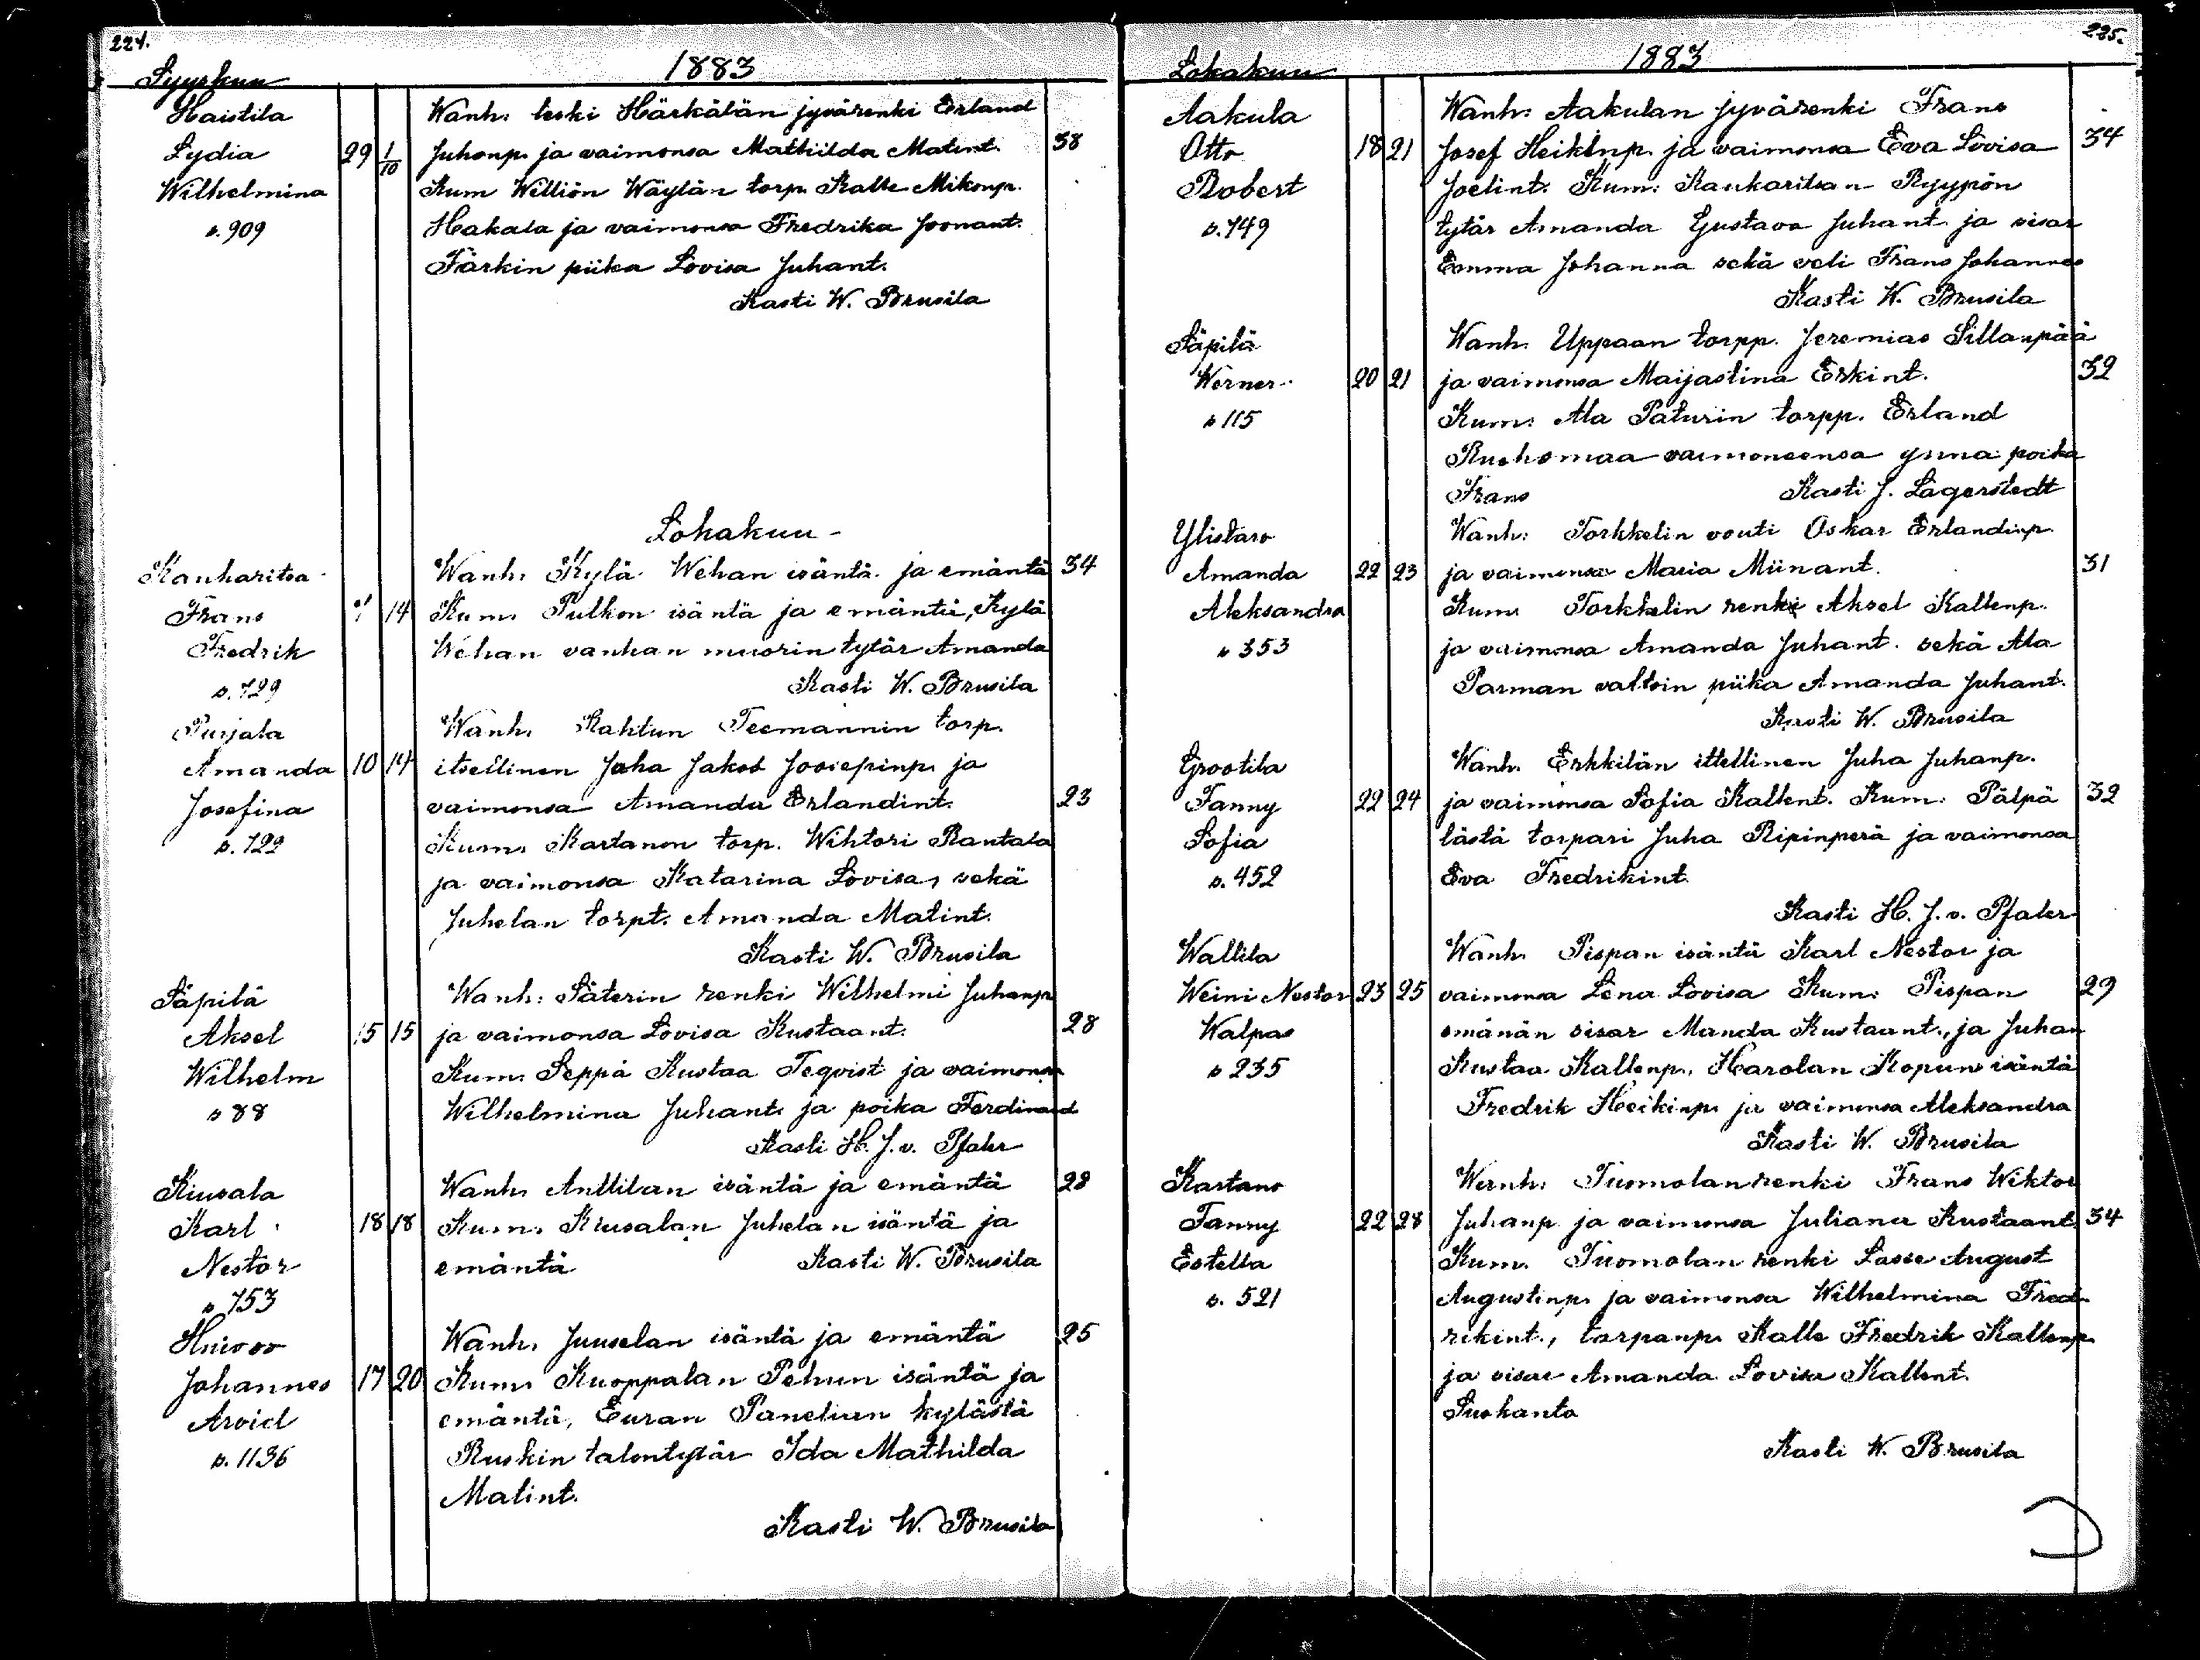 224.
1883
Syyskuu
Haistila
Lydia
Wilhelmina
s. 909
29 1/10
Wanh. leski Härkälän jyvärenki Erland
Juhonp. ja vaimonsa Mathilda Matint.
38
Kum Williön Wäylän torp. Kalle Mikonp.
Hakala ja vaimonsa Fredrika Joonant.
Färkin piika Lovisa Juhant.
Kasti W. Brusila
Lokakuu
Kauharitsa
Frans
Fredrik
s. 729
14
Wanh. Kylä Wehan isäntä ja emäntä
34
Kum. Pulkon isäntä ja emäntä, Kylä
Wehan vanhan muorin tytär Amanda
Kasti W. Brusila
Purjala
Amanda
Josefina
s. 722
10 14
Wanh. Rahtun Teemannin torp.
itsellinen Juha Jakob Joosepinp. ja
vaimonsa Amanda Erlandint.
23
Kum. Kartanon torp. Wihtori Rantala
ja vaimonsa Katarina Lovisa, sekä
Juhelan torpt. Amanda Matint.
Kasti W. Brusila
Säpilä
Aksel
Wilhelm
s 88
15 15
Wanh: Säterin renki Wilhelmi Juhanp
ja vaimonsa Lovisa Kustaant.
28
Kum. Seppä Kustaa Teqvist ja vaimonsa
Wilhelmina Juhant. ja poika Ferdinand
Kasti H. J. v. Pfaler
Kiusala
Karl
Nestor
s 753
18 18
Wanh. Anttilan isäntä ja emäntä
28
Kum. Kiusalan Juhelan isäntä ja
emäntä
Kasti W. Brusila
Johannes
Arvid
s. 1136
17 20
Wanh. Juuselan isäntä ja emäntä
25
Kum. Kuoppalan Pehun isäntä ja
emäntä, Euran Panelian kylästä
Ruskin talontytär Ida Mathilda
Matint.
Kasti W. Brusila
225.
1883
Lokakuu
Aakula
Otto
Robert
s. 749
18 21
Wanh: Aakulan jyvärenki Frans
Josef Heikinp. ja vaimonsa Eva Lovisa
34
Joelint. Kum: Kauharitsan Ryypön
tytär Amanda Gustava Juhant. ja sisar
Emma Johanna sekä veli Frans Johannes
Kasti W. Brusila
Säpilä
Werner
s 115
20 21
Wanh. Uppaan torpp. Jeremias Sillanpää
ja vaimonsa Maijastina Erkint.
32
Kum: Ala Paturin torpp. Erland
Ruohomaa vaimoneensa ynna poika
Frans
Kasti J. Lagerstedt
Ylistaro
Amanda
Aleksandra
s 353
22 23
Wanh: Torkkelin vouti Oskar Erlandinp.
ja vaimonsa Maria Miinant.
31
Kum. Torkkelin renki Aksel Kallenp.
ja vaimonsa Amanda Juhant. sekä Ala
Parman valtin piika Amanda Juhant.
Kasti W. Brusila
Grootila
Fanny
Sofia
s. 452
22 24
Wanh. Erkkilän ittellinen Juha Juhanp.
ja vaimonsa Sofia Kallent. Kum: Pälpä
32
lästä torpari Juha Ripinperä ja vaimonsa
Eva Fredrikint.
Kasti H. J. v. Pfaler
Wallila
Weini Nestor
Walpas
s 235
23 25
Wanh. Pispan isäntä Karl Nestor ja
vaimonsa Lena Lovisa Kum: Pispan
29
emänän sisar Manda Kustaant., ja Juhan
Kustaa Kallenp., Harolan Kopuns isäntä
Fredrik Heikinp. ja vaimonsa Aleksandra
Kasti W. Brusila
Kartano
Fanny
Estella
s. 521
22 28
Wanh: Tuomolan renki Frans Wiktor
Juhanp. ja vaimonsa Juliana Kustaant.
34
Kum. Tuomolan renki Lasse August
Augustinp. ja vaimonsa Wilhelmina Fred-
rikint., torpanp. Kalle Fredrik Kallenp.
ja sisar Amanda Lovisa Kallent.
Suokanto
Kasti W. Brusila